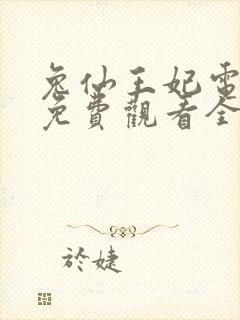 兔仙王妃電
免費觀看全
於婕